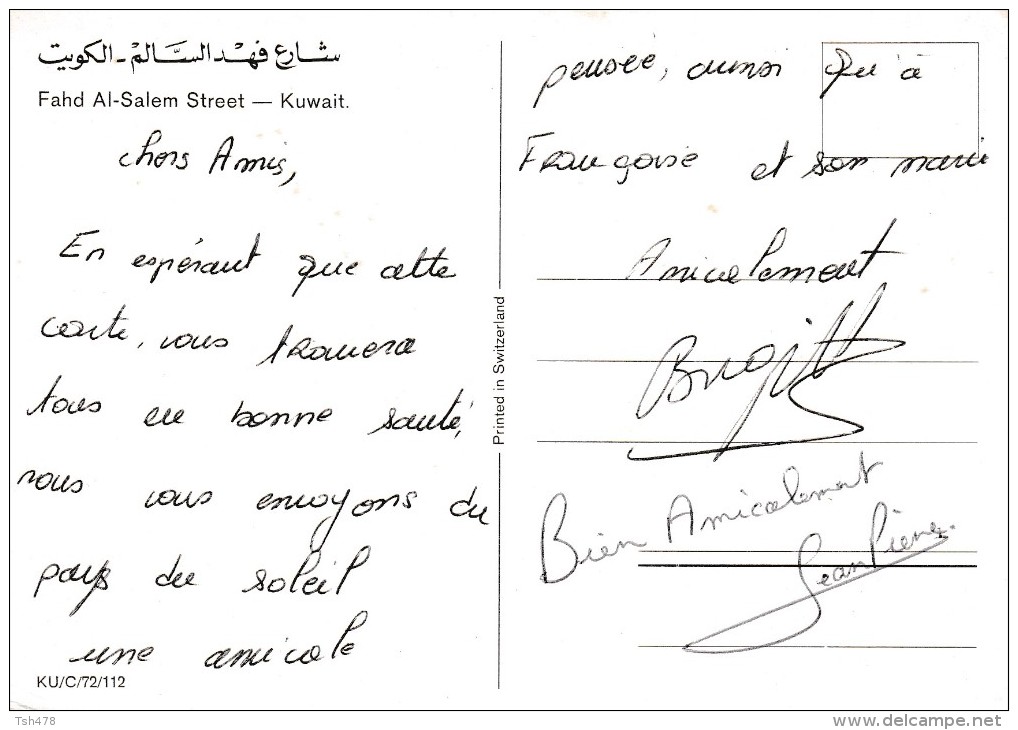 شارع فهد السالم - الكويت
Fahd Al-Salem Street — Kuwait.
chers Amis,
En espérant que cette
carte, vous trouvera
tous en bonne santé,
nous vous envoyons du
pays du soleil
une amicale
KU/C/72/112
Printed in Switzerland
pensée, ainsi qu'à
Françoise et son mari
Amicalement
Brigitte
Bien Amicalement
Jean Pierre.
Tsh478
www.delcampe.net